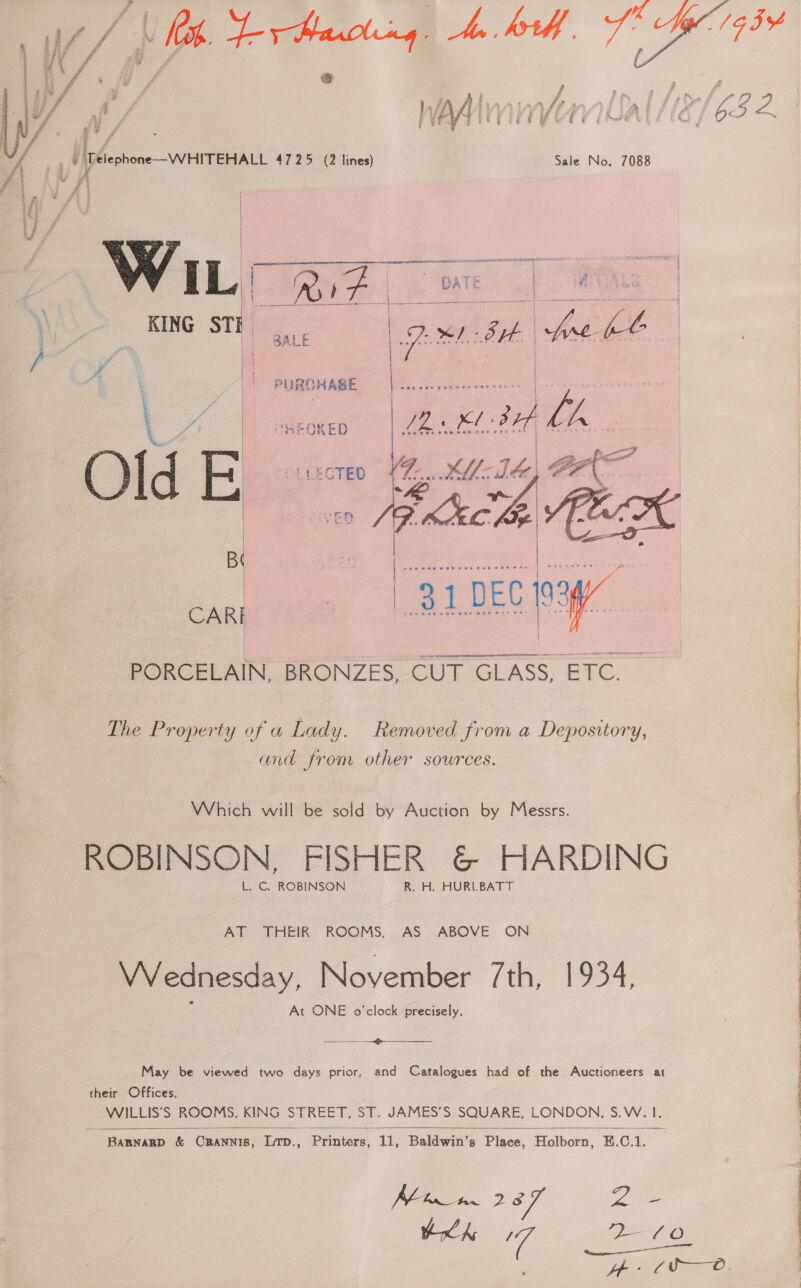 Rob. F & Harding. 7th Nov. 1934
Telephone—WHITEHALL 4725 (2 lines) Sale No. 7088
WIL
DATE
KING STR
SALE
PURCHASE
CHECKED
Old E
COLLECTED
31 DEC 1934
CARP
PORCELAIN, BRONZES, CUT GLASS, ETC.
The Property of a Lady. Removed from a Depository,
and from other sources.
Which will be sold by Auction by Messrs.
ROBINSON, FISHER & HARDING
L. C. ROBINSON R. H. HURLBATT
AT THEIR ROOMS, AS ABOVE ON
Wednesday, November 7th, 1934,
At ONE o'clock precisely.
May be viewed two days prior, and Catalogues had of the Auctioneers at
their Offices,
WILLIS'S ROOMS, KING STREET, ST. JAMES'S SQUARE, LONDON, S.W. 1.
BARNARD & CRANNIS, LTD., Printers, 11, Baldwin's Place, Holborn, E.C.1.
237 2 -
17 2-10
4-10-0.